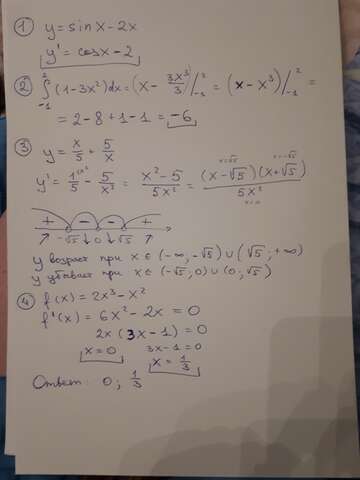 ① y = sin x - 2x
y' = cos x - 2
② ∫₋₁² (1-3x²)dx = (x - 3x³/3)/₋₁² = (x - x³)/₋₁² =
= 2 - 8 + 1 - 1 = -6
③ y = x/5 + 5/x
x=√5 x=-√5
y' = 1/5 - 5/x² = x²-5/5x² = (x-√5)(x+√5)/5x²
+ - - +
↗ -√5 ↓ 0 ↓ √5 ↗
y возраст при x ∈ (-∞; -√5) ∪ (√5; +∞)
y убывает при x ∈ (-√5; 0) ∪ (0; √5)
④ f(x) = 2x³ - x²
f'(x) = 6x² - 2x = 0
2x (3x - 1) = 0
x = 0 3x - 1 = 0
x = 1/3
Ответ: 0; 1/3